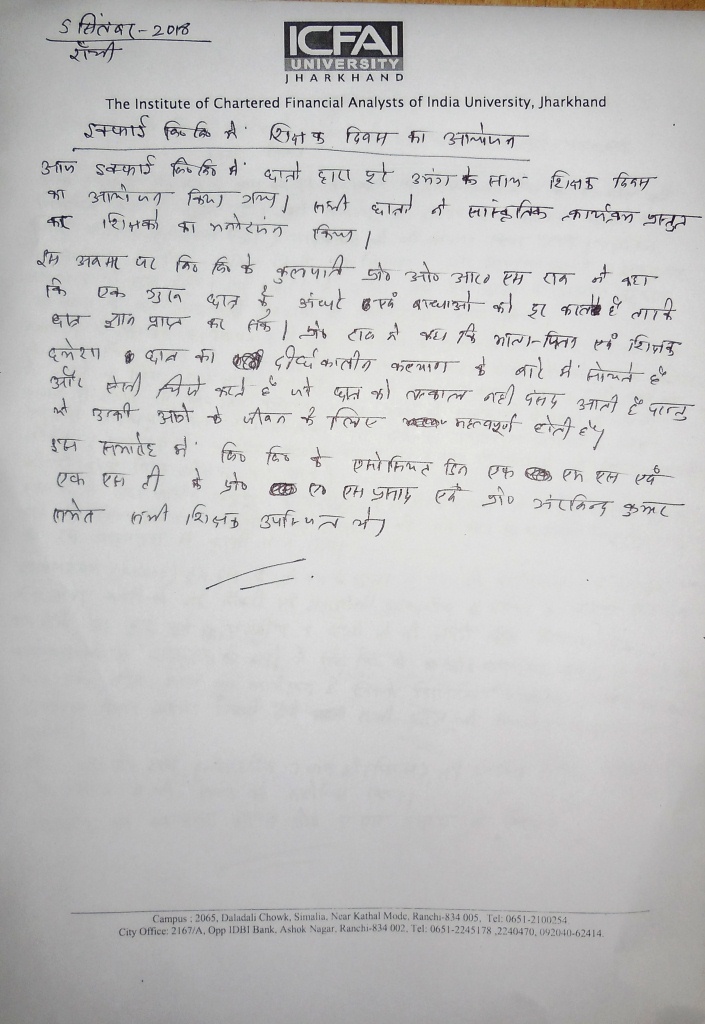 5 सितंबर - 2018
राँची
ICFAI
UNIVERSITY
JHARKHAND
The Institute of Chartered Financial Analysts of India University, Jharkhand
इक्फाई वि० वि० में शिक्षक दिवस का आयोजन
आज इक्फाई वि० वि० में छात्रों द्वारा पूरे उमंग के साथ शिक्षक दिवस
का आयोजन किया गया। सभी छात्रों ने सांस्कृतिक कार्यक्रम प्रस्तुत
कर शिक्षकों का मनोरंजन किया।
इस अवसर पर वि० वि० के कुलपति प्रो० ओ० आर० एस राव ने कहा
कि एक गुरु छात्र के अंधेरे एवं बाधाओं को दूर करते हैं ताकि
छात्र ज्ञान प्राप्त कर सकें। प्रो० राव ने कहा कि माता-पिता एवं शिक्षक
हमेशा छात्र का दीर्घकालीन कल्याण के बारे में सोचते हैं
और ऐसी चिजें करते हैं जो छात्र को तत्काल नहीं पसंद आती हैं परन्तु
वे उनकी आगे के जीवन के लिए महत्वपूर्ण होती है।
इस समारोह में वि० वि० के एसोसियट डिन एफ एम एस एवं
एफ एस टी के प्रो० ए० एस प्रसाद एवं प्रो० अरविन्द कुमार
समेत सभी शिक्षक उपस्थित थे।
Campus : 2065, Daladali Chowk, Simalia, Near Kathal Mode, Ranchi-834 005, Tel: 0651-2100254
City Office: 2167/A, Opp IDBI Bank, Ashok Nagar, Ranchi-834 002, Tel: 0651-2245178 ,2240470, 092040-62414